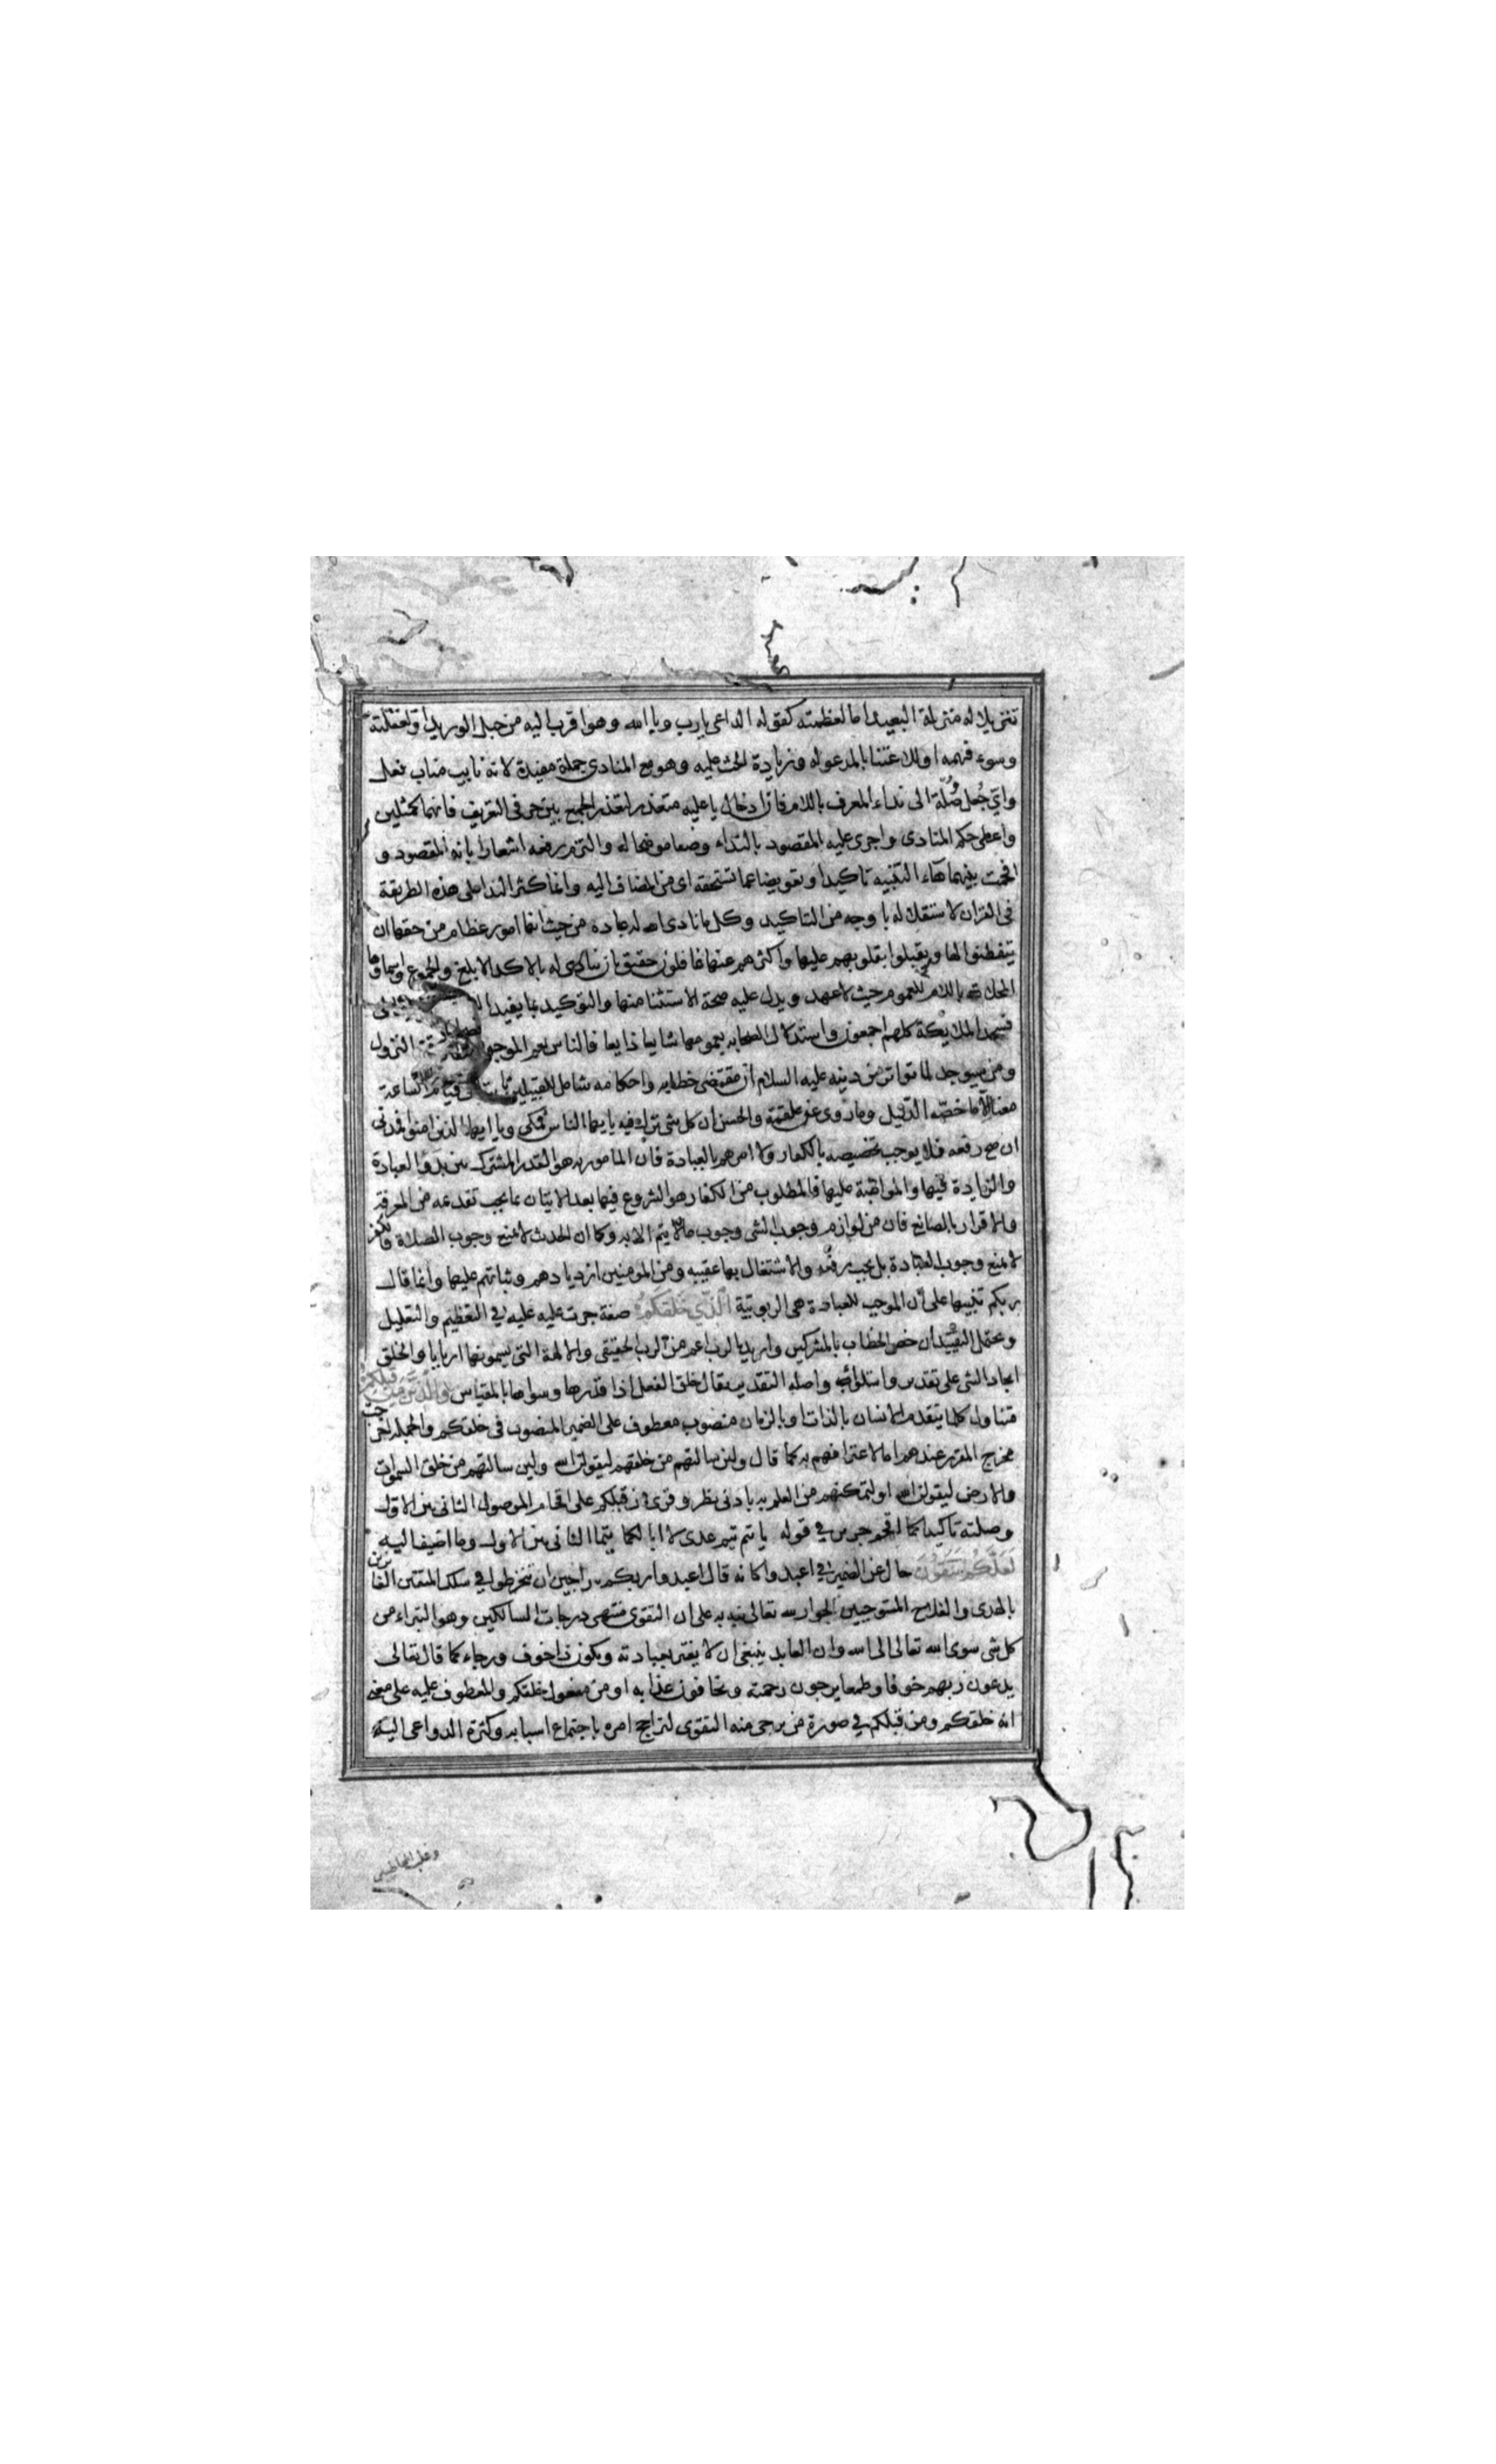 تنزيلا له منزلة البعيد اما لعظمته كقول الداعى يارب ويا الله وهو اقرب اليه من حبل الوريد او لغفلته
وسوء فهمه او للاعتنا بالمدعو له وزيادة الحث عليه وهو مع المنادى جملة مفيدة لانه نايب مناب فعل
واى جعل صلة الى نداء المعرف باللام فان ادخال يا عليه متعذر لتعذر الجمع بين حرفى التعريف فانهما كمثلين
واعطى حكم المنادى واجرى عليه المقصود بالنداء وصفا موضحا له والتزم رفعه اشعارا بانه المقصود و
اقحمت بينهما هاء التنبيه تاكيدا وتعويضا عما تستحقه اى من المضاف اليه وانما كثر الندا على هذه الطريقة
فى القران لاستقلاله باوجه من التاكيد وكل ما نادى الله له عباده من حيث انها امور عظام من حقها ان
يتفطنوا لها ويقبلوا بقلوبهم عليها واكثرهم عنها غافلون حقيق بان ينادى له بالاكد الابلغ والجموع واسماوها
المحلاة باللام للعموم حيث لا عهد ويدل عليه صحة الاستثنا منها والتوكيد بما يفيد
فسجد الملايكة كلهم اجمعون واستدلال الصحابه بعمومها شايعا ذايعا فالناس يعم الموجودين النزول
ومن سيوجد لما تواتر من دينه عليه السلام ان مقتضى خطابه واحكامه شامل للقبيلين ثابت الى قيام الساعة
معنا الا ما خصه الدليل وما روى عن علقمة والحسن ان كل شى نزل فيه يا يها الناس فمكى ويا ايها الذين امنوا فمدنى
ان صح رفعه فلا يوجب تخصيصه بالكفار ولا امرهم بالعبادة فان المامور به هو القدر المشترك بين بدو العبادة
والزيادة فيها والمواظبة عليها فالمطلوب من الكفار هو الشروع فيها بعد الاتيان بما يجب تقدمه من المعرفة
والاقرار بالصانع فان من لوازم وجوب الشى وجوب ما لا يتم الا به وكما ان الحدث لا يمنع وجوب الصلاة فالكفر
لا يمنع وجوب العبادة بل يجب رفعه والاشتغال بها عقيبه ومن المومنين ازديادهم وثباتهم عليها وانما قال
ربكم تنبيها على ان الموجب للعبادة هى الربوبية الذى خلقكم صفة جرت عليه عليه فى التعظيم والتعليل
ويحتمل التقييد ان خص الخطاب بالمشركين واريد بالرب اعم من الرب الحقيقى والالهة التى يسمونها اربابا والخلق
ايجاد الشى على تقدير واستواء واصله التقدير يقال خلق النعل اذا قدرها وسواها بالمقياس والذين من قبلكم
متناول كلما يتقدم الانسان بالذات او بالزمان منصوب معطوف على الضمير المنصوب فى خلقكم والجمله اخرجت
مخرج المقرر عندهم اما لاعترافهم به كما قال ولين سالتهم من خلقهم ليقولن الله ولين سالتهم من خلق السموات
والارض ليقولن الله او لتمكنهم من العلم به بادنى نظر وقرى من قبلكم على اقحام الموصول الثانى بين الاول
وصلته تاكيدا كما اقحم جرير فى قوله يا تيم تيم عدى لا ابا لكما تيما الثانى بين الاول وما اضيف اليه
لعلكم تتقون حال عن الضمير فى اعبدوا كانه قال اعبدوا ربكم راجين ان تنخرطوا فى سلك المتقين الفايزين
بالهدى والفلاح المستوجبين لجوار الله تعالى نبه به على ان التقوى منتهى درجات السالكين وهو التبراء من
كل شى سوى الله تعالى الى الله وان العابد ينبغى ان لا يغتر بعبادته ويكون ذا خوف ورجاء كما قال تعالى
يدعون ربهم خوفا وطمعا يرجون رحمته ويخافون عذابه او من مفعول خلقكم والمعطوف عليه على معنى
انه خلقكم ومن قبلكم فى صورة من يرجى منه التقوى لترجح امره باجتماع اسبابه وكثرة الدواعى اليه